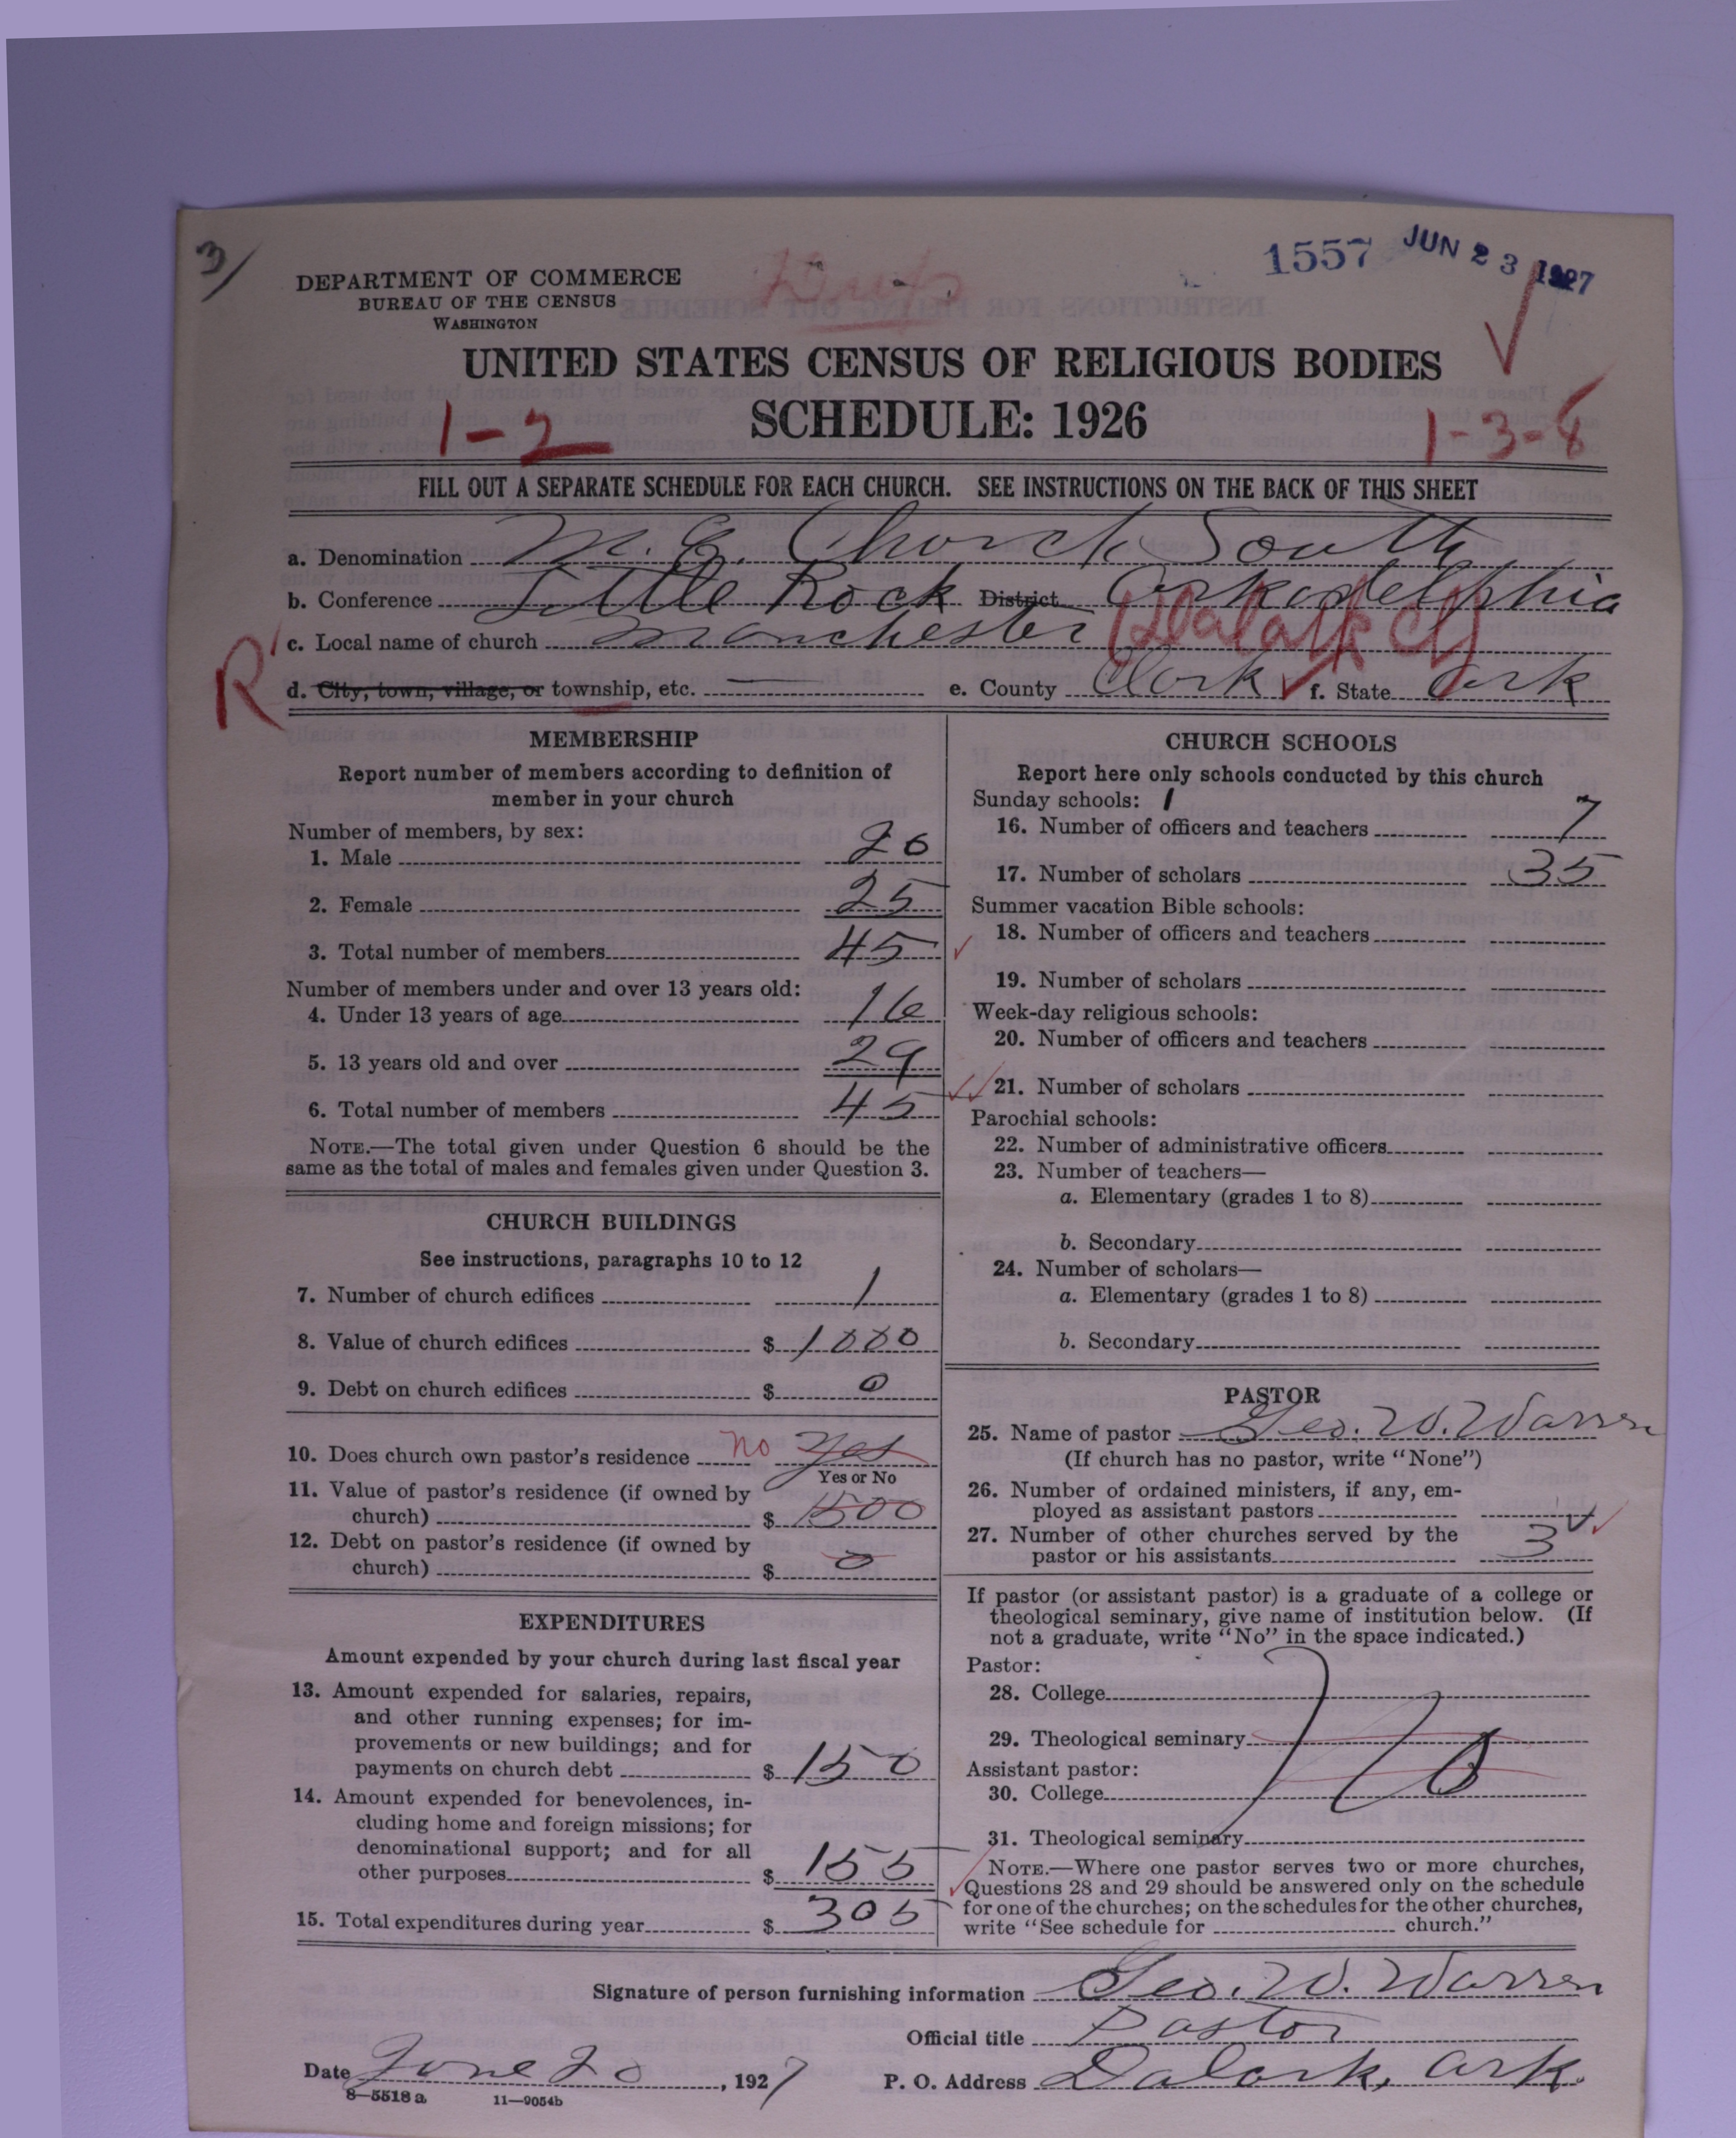 3/
1557 JUN 23 1927
DEPARTMENT OF COMMERCE
BUREAU OF THE CENSUS
WASHINGTON
UNITED STATES CENSUS OF RELIGIOUS BODIES
SCHEDULE: 1926
1-2
1-3-8
FILL OUT A SEPARATE SCHEDULE FOR EACH CHURCH. SEE INSTRUCTIONS ON THE BACK OF THIS SHEET
a. Denomination M. E. Church South
b. Conference Little Rock District Arkadelphia
c. Local name of church Manchester (Dalark Ct)
R
d. City, town, village, or township, etc. — e. County Clark f. State Ark
MEMBERSHIP
Report number of members according to definition of
member in your church
Number of members, by sex:
1. Male 20
2. Female 25
3. Total number of members 45
Number of members under and over 13 years old:
4. Under 13 years of age 16
5. 13 years old and over 29
6. Total number of members 45
NOTE.—The total given under Question 6 should be the
same as the total of males and females given under Question 3.
CHURCH BUILDINGS
See instructions, paragraphs 10 to 12
7. Number of church edifices 1
8. Value of church edifices $ 1000
9. Debt on church edifices $ 0
10. Does church own pastor's residence no yes
Yes or No
11. Value of pastor's residence (if owned by
church) $ 1500
12. Debt on pastor's residence (if owned by
church) $ 0
EXPENDITURES
Amount expended by your church during last fiscal year
13. Amount expended for salaries, repairs,
and other running expenses; for im-
provements or new buildings; and for
payments on church debt $ 150
14. Amount expended for benevolences, in-
cluding home and foreign missions; for
denominational support; and for all
other purposes $ 155
15. Total expenditures during year $ 305
CHURCH SCHOOLS
Report here only schools conducted by this church
Sunday schools: 1
16. Number of officers and teachers 7
17. Number of scholars 35
Summer vacation Bible schools:
18. Number of officers and teachers
19. Number of scholars
Week-day religious schools:
20. Number of officers and teachers
21. Number of scholars
Parochial schools:
22. Number of administrative officers
23. Number of teachers—
a. Elementary (grades 1 to 8)
b. Secondary
24. Number of scholars—
a. Elementary (grades 1 to 8)
b. Secondary
PASTOR
25. Name of pastor Geo. W. Warren
(If church has no pastor, write "None")
26. Number of ordained ministers, if any, em-
ployed as assistant pastors
27. Number of other churches served by the
pastor or his assistants 3
If pastor (or assistant pastor) is a graduate of a college or
theological seminary, give name of institution below. (If
not a graduate, write "No" in the space indicated.)
Pastor:
28. College
29. Theological seminary
No
Assistant pastor:
30. College
31. Theological seminary
NOTE.—Where one pastor serves two or more churches,
Questions 28 and 29 should be answered only on the schedule
for one of the churches; on the schedules for the other churches,
write "See schedule for church."
Signature of person furnishing information Geo. W. Warren
Official title Pastor
Date June 20, 1927 P. O. Address Dalark, Ark.
8—5518 a 11—9054b